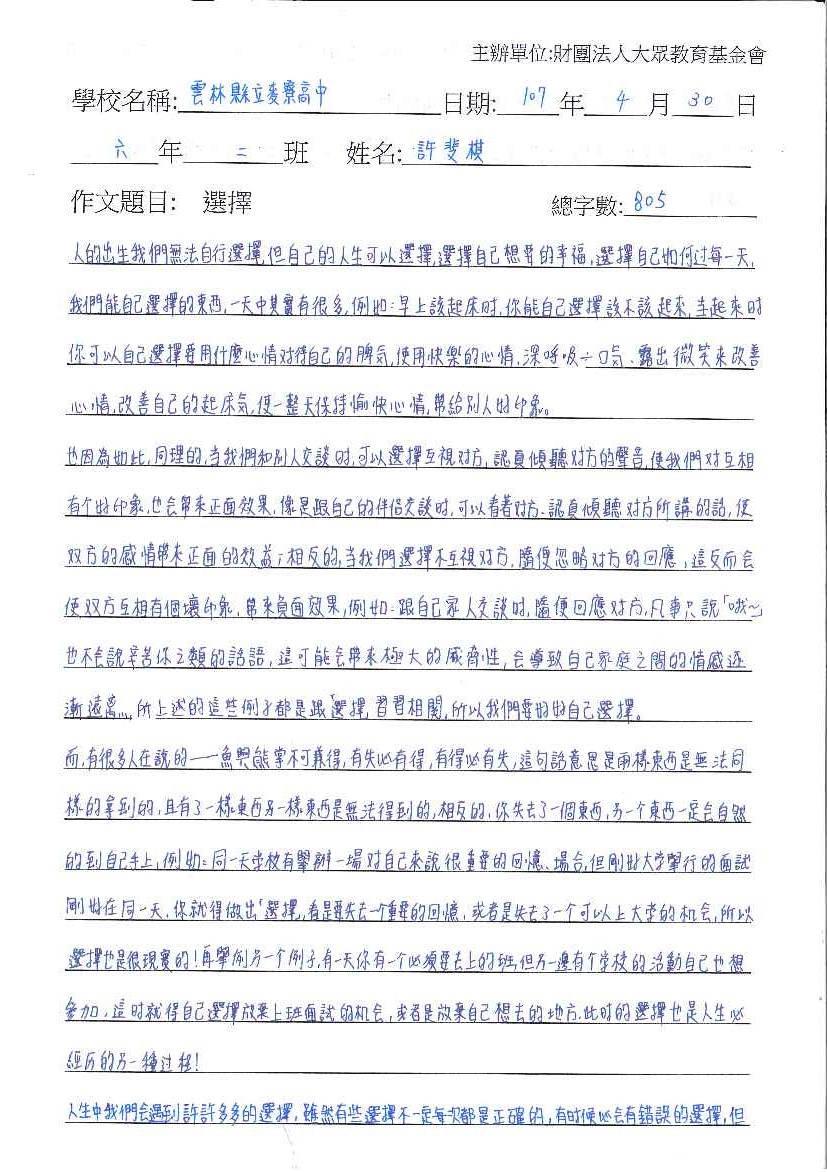 主辦單位:財團法人大眾教育基金會
學校名稱:雲林縣立麥寮高中 日期: 107 年 4 月 30 日
六 年 二 班 姓名: 許斐棋
作文題目: 選擇 總字數: 805
人的出生我們無法自行選擇,但自己的人生可以選擇,選擇自己想要的幸福,選擇自己如何过每一天,
我們能自己選擇的東西,一天中其實有很多,例如:早上該起床时,你能自己選擇該不該起來,当起來时
你可以自己選擇要用什麼心情对待自己的脾氣,使用快樂的心情,深呼吸一口气、露出微笑來改善
心情,改善自己的起床気,使一整天保持愉快心情,帶給別人好印象。
也因為如此,同理的,当我們和別人交談时,可以選擇互視对方,認真傾聽对方的聲音,使我們对互相
有个好印象,也会帶來正面效果,像是跟自己的伴侣交談时,可以看著对方、認真傾聽对方所講的話,使
双方的感情帶來正面的效益;相反的,当我們選擇不互視对方,隨便忽略对方的回應,這反而会
使双方互相有個壞印象,帶來負面效果,例如:跟自己家人交談时,隨便回應对方,凡事只說「哦~」
也不会說辛苦你之類的話語,這可能会帶來極大的威脅性,会導致自己家庭之間的情感逐
漸遠离,所上述的這些例子都是跟「選擇」習習相関,所以我們要好好自己選擇。
而,有很多人在說的——魚與熊掌不可兼得,有失必有得,有得必有失,這句話意思是兩樣東西是無法同
樣的拿到的,且有了一樣東西另一樣東西是無法得到的,相反的,你失去了一個東西,另一个東西一定会自然
的到自己手上,例如:同一天学校有舉辦一場对自己來說很重要的回憶、場合,但剛好大学舉行的面試
剛好在同一天,你就得做出「選擇」,看是要失去一个重要的回憶,或者是失去了一个可以上大学的机会,所以
選擇也是很現實的!再舉例另一个例子,有一天你有一个必須要去上的班,但另一邊有个学校的活動自己也想
參加,這时就得自己選擇放棄上班面試的机会,或者是放棄自己想去的地方.此时的選擇也是人生必
經历的另一種过程!
人生中我們会遇到許許多多的選擇,雖然有些選擇不一定每次都是正確的,有时候必会有錯誤的選擇,但